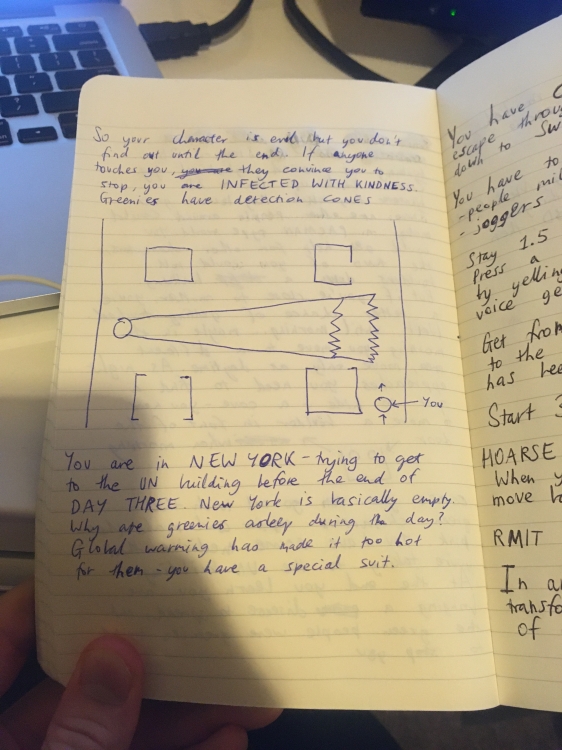 So your character is evil but you don't
find out until the end. If anyone
touches you, they convince you to
stop, you are INFECTED WITH KINDNESS.
Greenies have detection CONES
You
You are in NEW YORK - trying to get
to the UN building before the end of
DAY THREE. New York is basically empty.
Why are greenies asleep during the day?
Global warming has made it too hot
for them - you have a special suit.
You have
escape throu
down to Sw
You have to
- people mil
- joggers
Stay 1.5
Press a
by yelling
voice ge
Get from
to the
has bee
Start 3
HOARSE
When y
move b
RMIT
In a
transfo
of